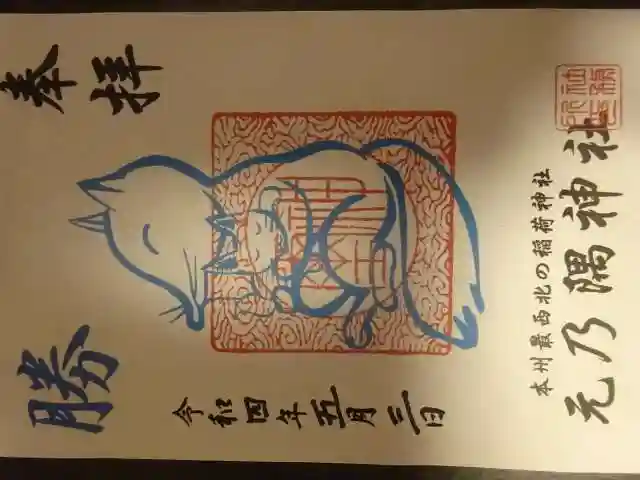 奉拝
勝
令和四年五月三日
本州最西北の稲荷神社
元乃隅神社